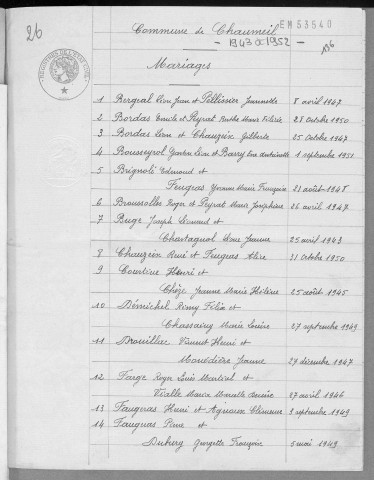 26
Commune de Chaumeil
EM53540
- 1943 à 1952 -
136
Mariages
1 Bergeal Léon Jean et Pellissier Jeannette 8 avril 1947
2 Bordas Emile et Peyrat Marie 28 Octobre 1950
3 Bordas Léon et Chauzeix Gilberte 25 Octobre 1947
4 Bousseyrol Gaston Léon et Barry Antoinette 1 septembre 1951
5 Brignoli Edmond et
Feugeas Yvonne Marie Françoise 21 août 1948
6 Broussolles Roger et Peyrat Maria Joséphine 26 avril 1947
7 Buge Joseph Léonard et
Chastagnol Jeanne 25 avril 1943
8 Chauzeix René et Feugeas Alice 21 Octobre 1950
9 Courtine Henri et
Chèze Jeanne Marie Hélène 25 août 1945
10 Démichel Rémy Félix et
Chassaing Marie Louise 27 septembre 1949
11 Drouillac Vincent Henri et
Monédière Jeanne 27 décembre 1947
12 Farge Roger Louis Martial et
Vialle Maria Marcelle 27 avril 1946
13 Faugeras Henri et 3 septembre 1949
14 Faugeras Pierre et
Duberg Georgette Françoise 5 mai 1949